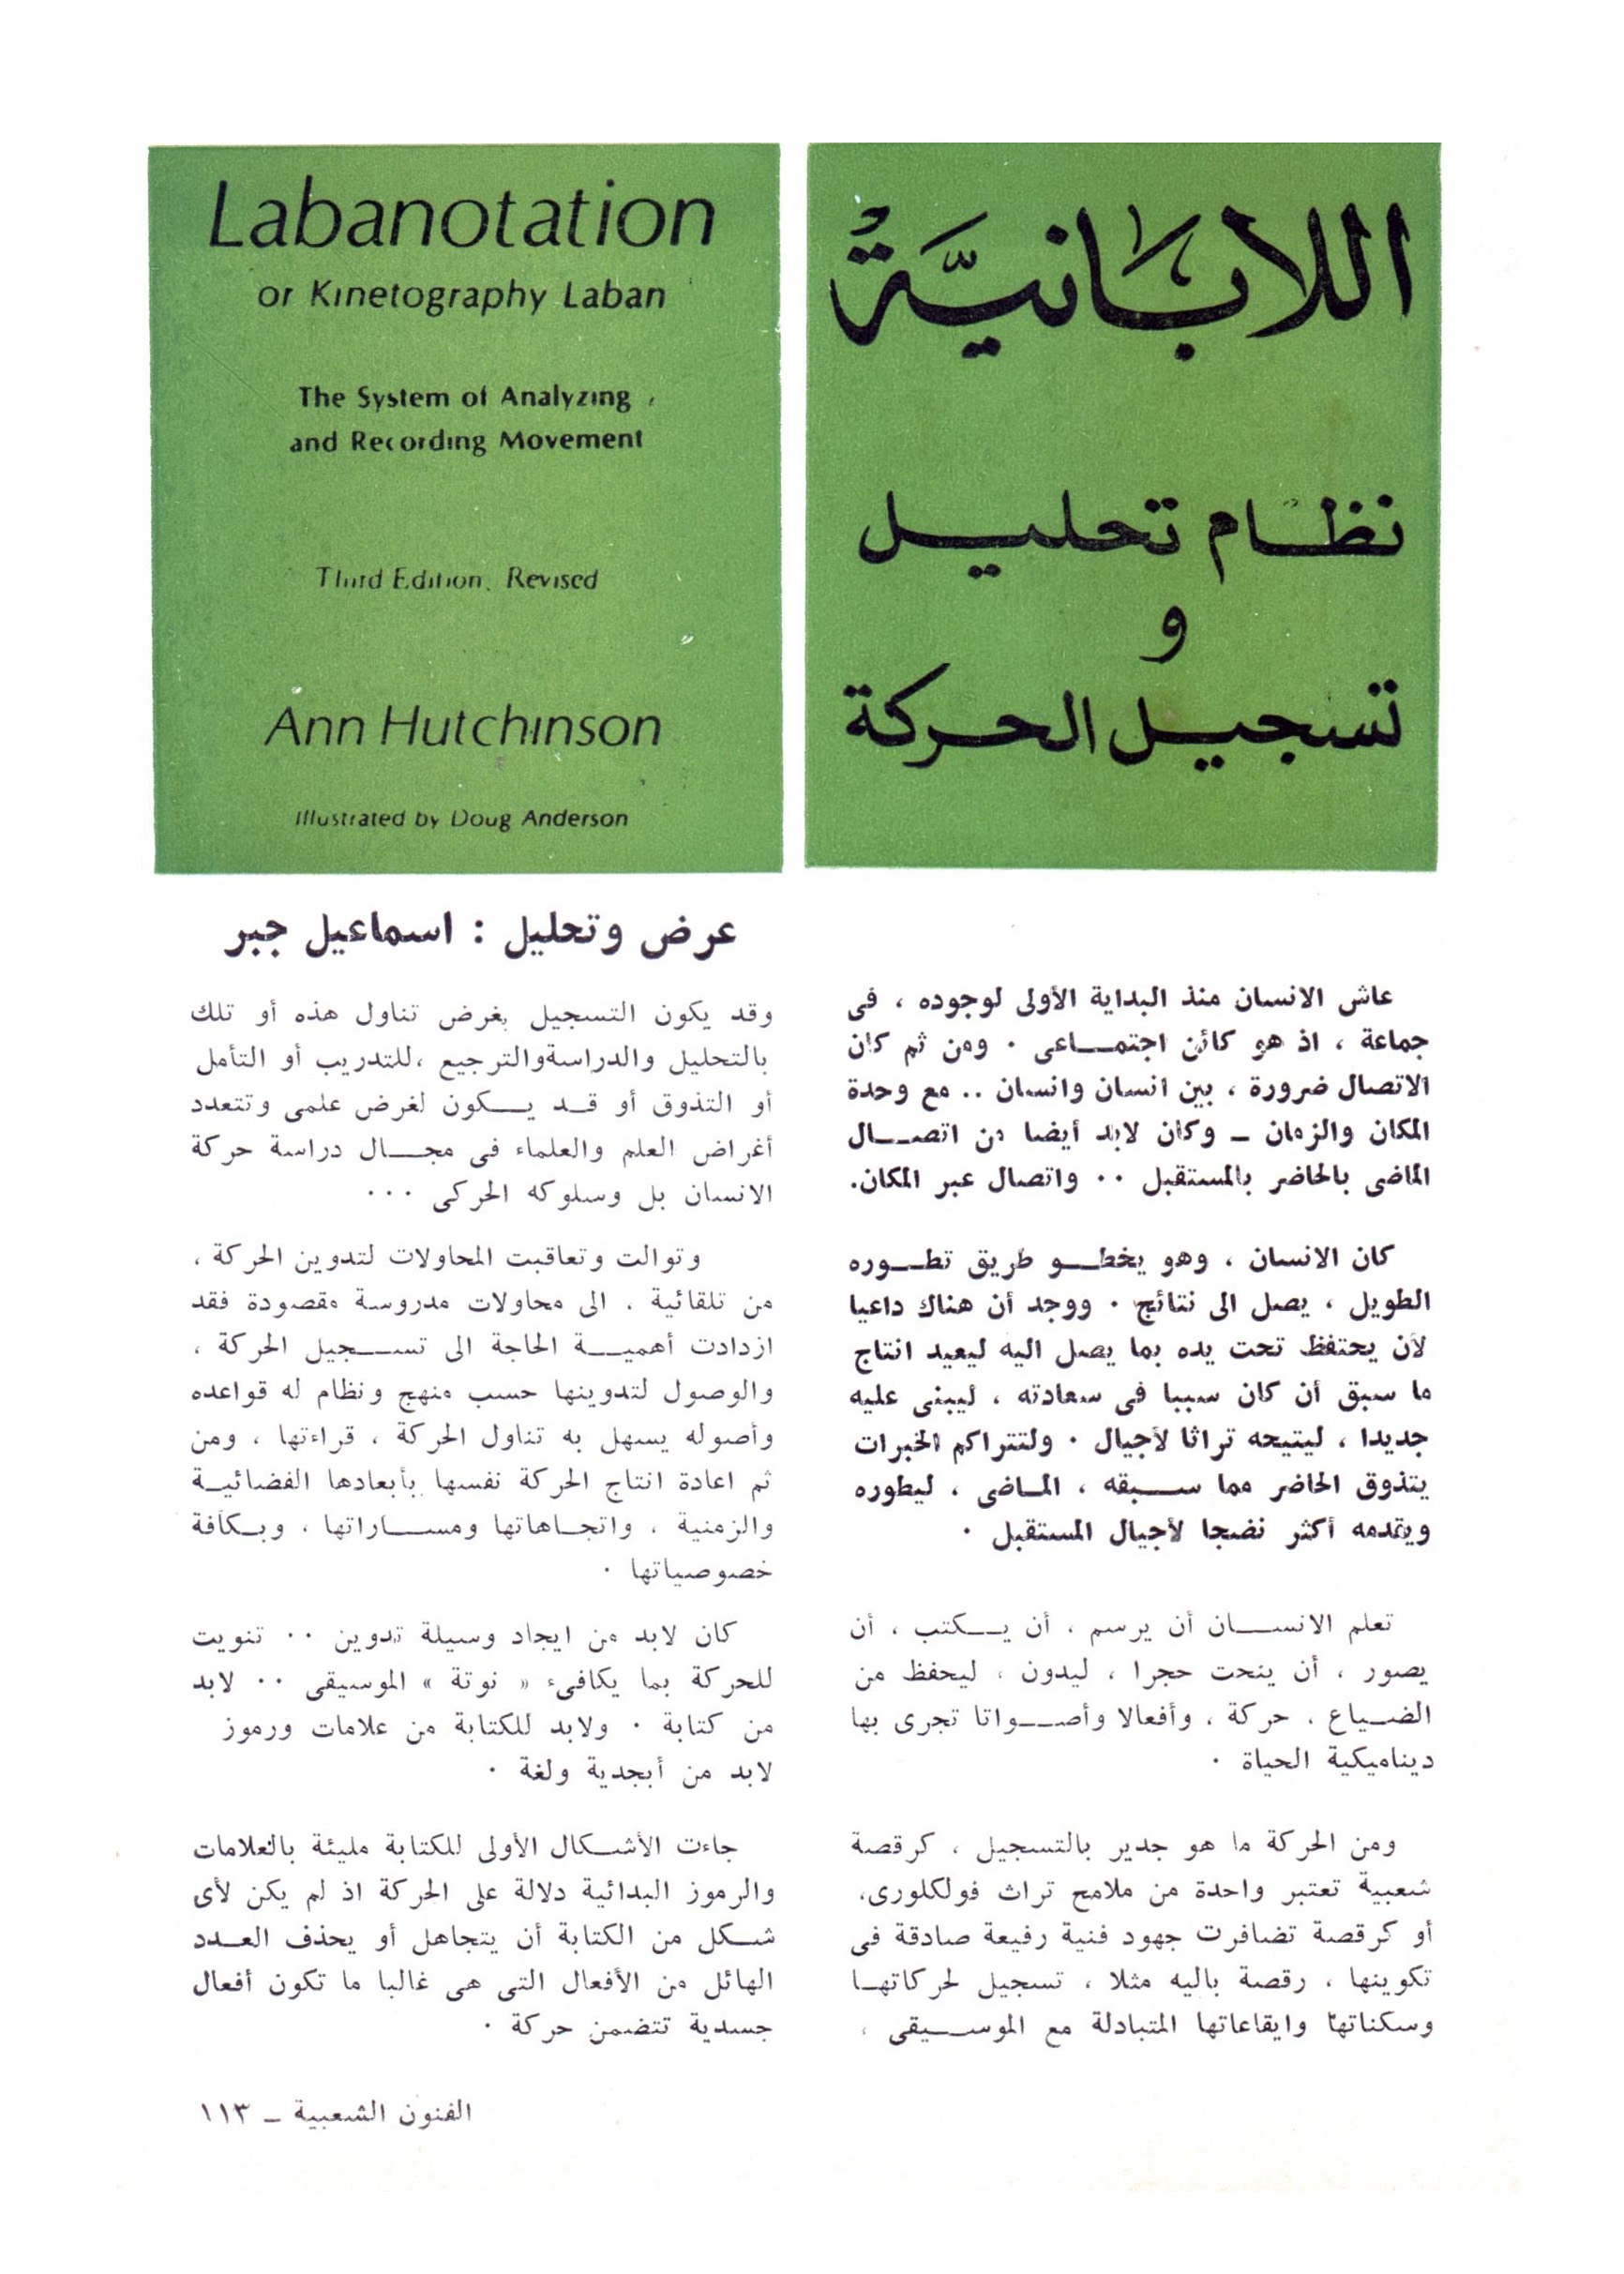 اللابانية
نظام تحليل
و
تسجيل الحركة
Labanotation
or Kinetography Laban
The System of Analyzing
and Recording Movement
Third Edition, Revised
Ann Hutchinson
Illustrated by Doug Anderson
عرض وتحليل : اسماعيل جبر
عاش الانسان منذ البداية الأولى لوجوده ، فى
جماعة ، اذ هو كائن اجتمـــاعى ٠ ومن ثم كان
الاتصال ضرورة ، بين انسان وانسان .. مع وحدة
المكان والزمان ـ وكان لابد أيضا من اتصـــال
الماضى بالحاضر بالمستقبل ٠٠ واتصال عبر المكان.
كان الانسان ، وهو يخطـــو طريق تطـــوره
الطويل ، يصل الى نتائج ٠ ووجد أن هناك داعيا
لأن يحتفظ تحت يده بما يصل اليه ليعيد انتاج
ما سبق أن كان سببا فى سعادته ، ليبنى عليه
جديدا ، ليتيحه تراثا لأجيال ٠ ولتتراكم الخبرات
يتذوق الحاضر مما ســـبقه ، المـاضى ، ليطوره
ويقدمه أكثر نضجا لأجيال المستقبل ٠
تعلم الانســـان أن يرسم ، أن يـــكتب ، أن
يصور ، أن ينحت حجرا ، ليدون ، ليحفظ من
الضـــياع ، حركة ، وأفعالا وأصـــواتا تجرى بها
ديناميكية الحياة ٠
ومن الحركة ما هو جدير بالتسجيل ، كرقصة
شعبية تعتبر واحدة من ملامح تراث فولكلورى،
أو كرقصة تضافرت جهود فنية رفيعة صادقة فى
تكوينها ، رقصة باليه مثلا ، تسجيل لحركاتهـا
وسكناتها وايقاعاتها المتبادلة مع الموســـيقى ،
وقد يكون التسجيل بغرض تناول هذه أو تلك
بالتحليل والدراسةوالترجيع ،للتدريب أو التأمل
أو التذوق أو قـــد يـــكون لغرض علمى وتتعدد
أغراض العلم والعلماء فى مجـــال دراسة حركة
الانسان بل وسلوكه الحركى ٠٠٠
وتوالت وتعاقبت المحاولات لتدوين الحركة ،
من تلقائية ، الى محاولات مدروسة مقصودة فقد
ازدادت أهميـــة الحاجة الى تســـجيل الحركة ،
والوصول لتدوينها حسب منهج ونظام له قواعده
وأصوله يسهل به تناول الحركة ، قراءتها ، ومن
ثم اعادة انتاج الحركة نفسها بأبعادها الفضائيـة
والزمنية ، واتجـاهاتها ومســـاراتها ، وبـكافة
خصوصياتها ٠
كان لابد من ايجاد وسيلة تدوين ٠٠ تنويت
للحركة بما يكافىء « نوتة » الموسيقى ٠٠ لابد
من كتابة ٠ ولابد للكتابة من علامات ورموز
لابد من أبجدية ولغة ٠
جاءت الأشـــكال الأولى للكتابة مليئة بالعلامات
والرموز البدائية دلالة على الحركة اذ لم يكن لأى
شـــكل من الكتابة أن يتجاهل أو يحذف العـــدد
الهائل من الأفعال التى هى غالبا ما تكون أفعال
جسدية تتضمن حركة ٠
الفنون الشعبية ـ ١١٣